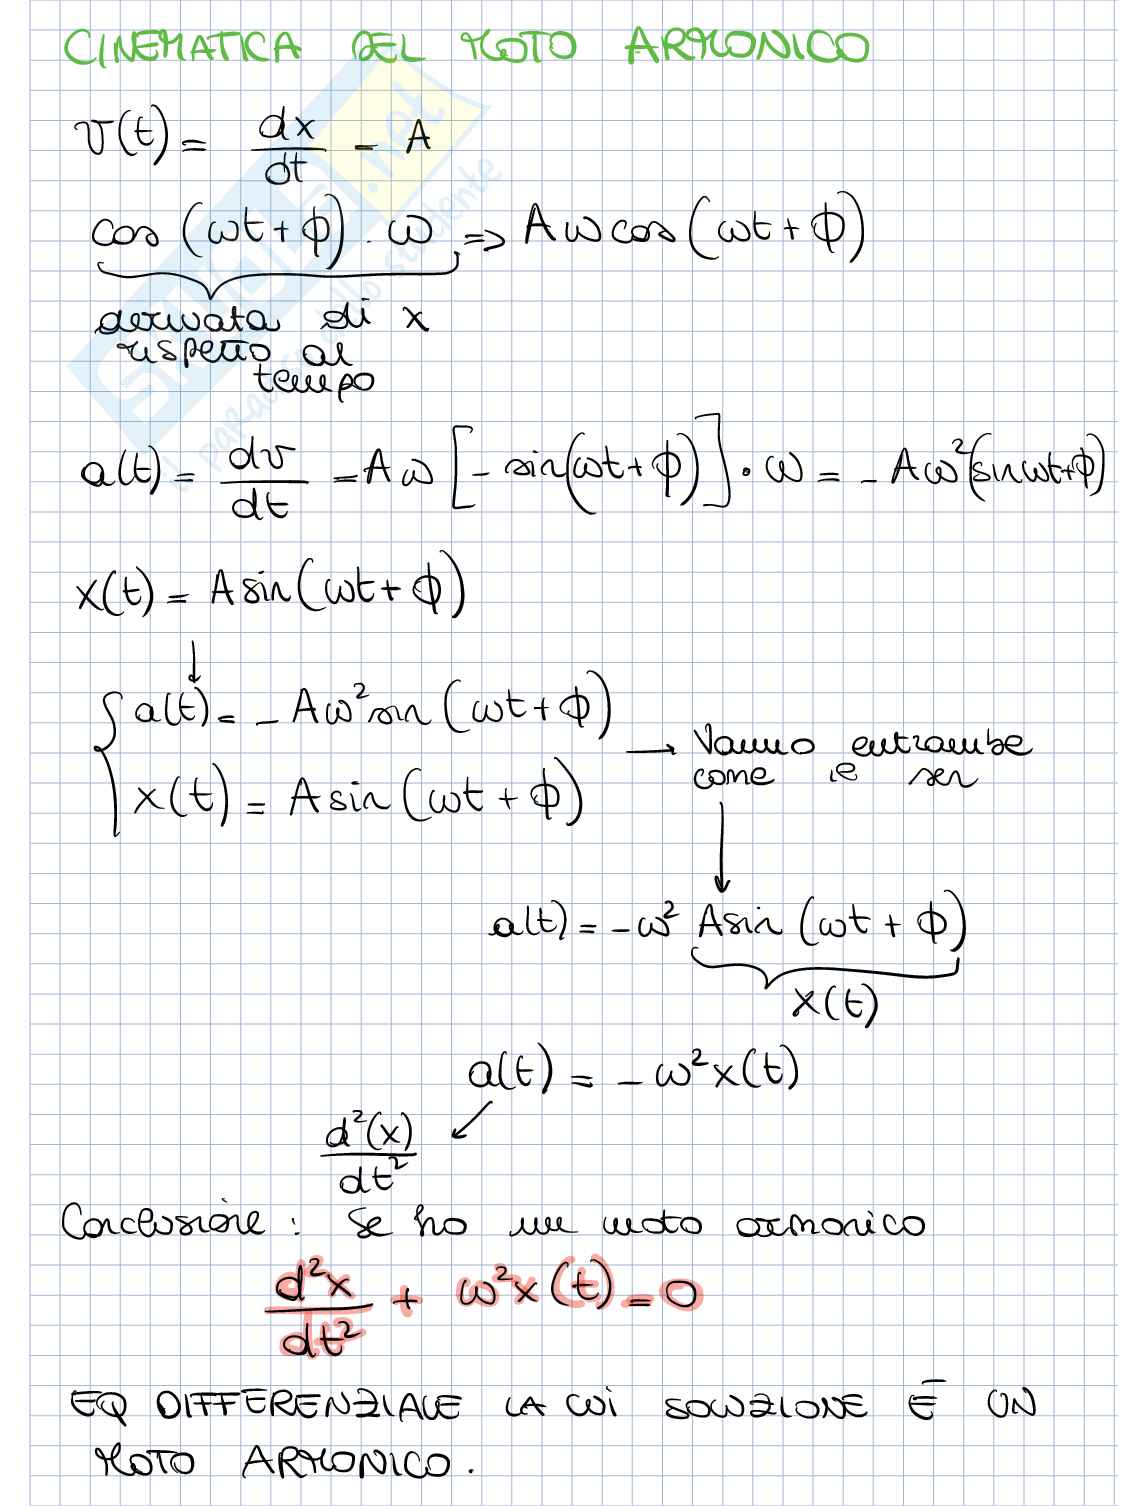 CINEMATICA DEL MOTO ARMONICO
v(t) = dx/dt = A
cos (ωt + ϕ) · ω => Aω cos (ωt + ϕ)
derivata di x
rispetto al
tempo
a(t) = dv/dt = Aω [- sin(ωt + ϕ)] · ω = - Aω²(sin ωt + ϕ)
x(t) = A sin (ωt + ϕ)
↓
{ a(t) = - Aω² sin (ωt + ϕ)
x(t) = A sin (ωt + ϕ) → Vanno entrambe
come il sen
↓
a(t) = - ω² A sin (ωt + ϕ)
x(t)
a(t) = - ω² x(t)
↙
d²(x)/dt²
Conclusione : Se ho un moto armonico
d²x/dt² + ω² x (t) = 0
EQ DIFFERENZIALE LA CUI SOLUZIONE È UN
MOTO ARMONICO.
SKUOLA.net
paradiso dello studente